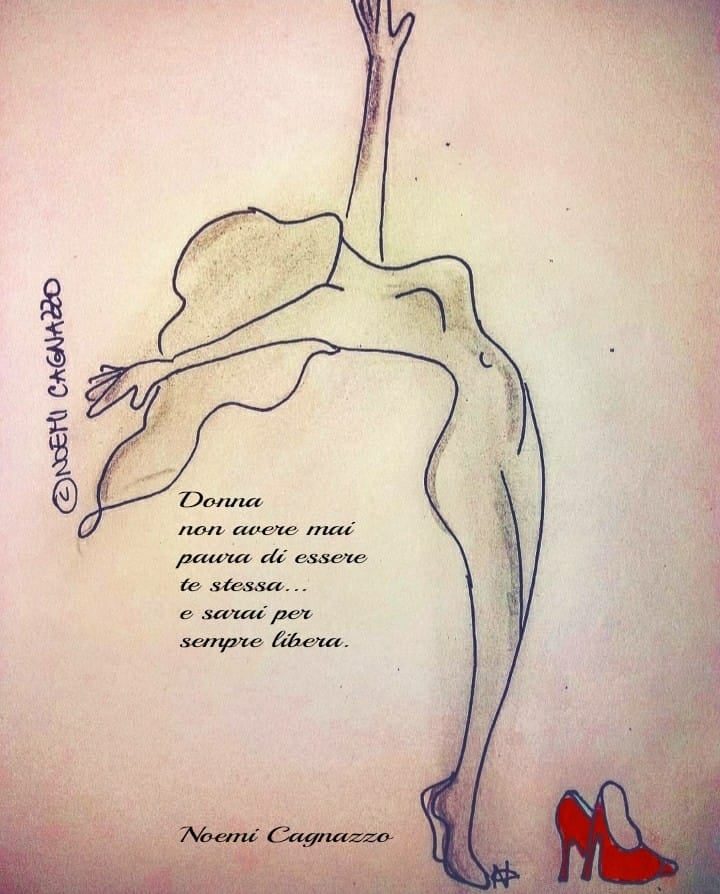 © NOEMI CAGNAZZO
Donna
non avere mai
paura di essere
te stessa...
e sarai per
sempre libera.
Noemi Cagnazzo